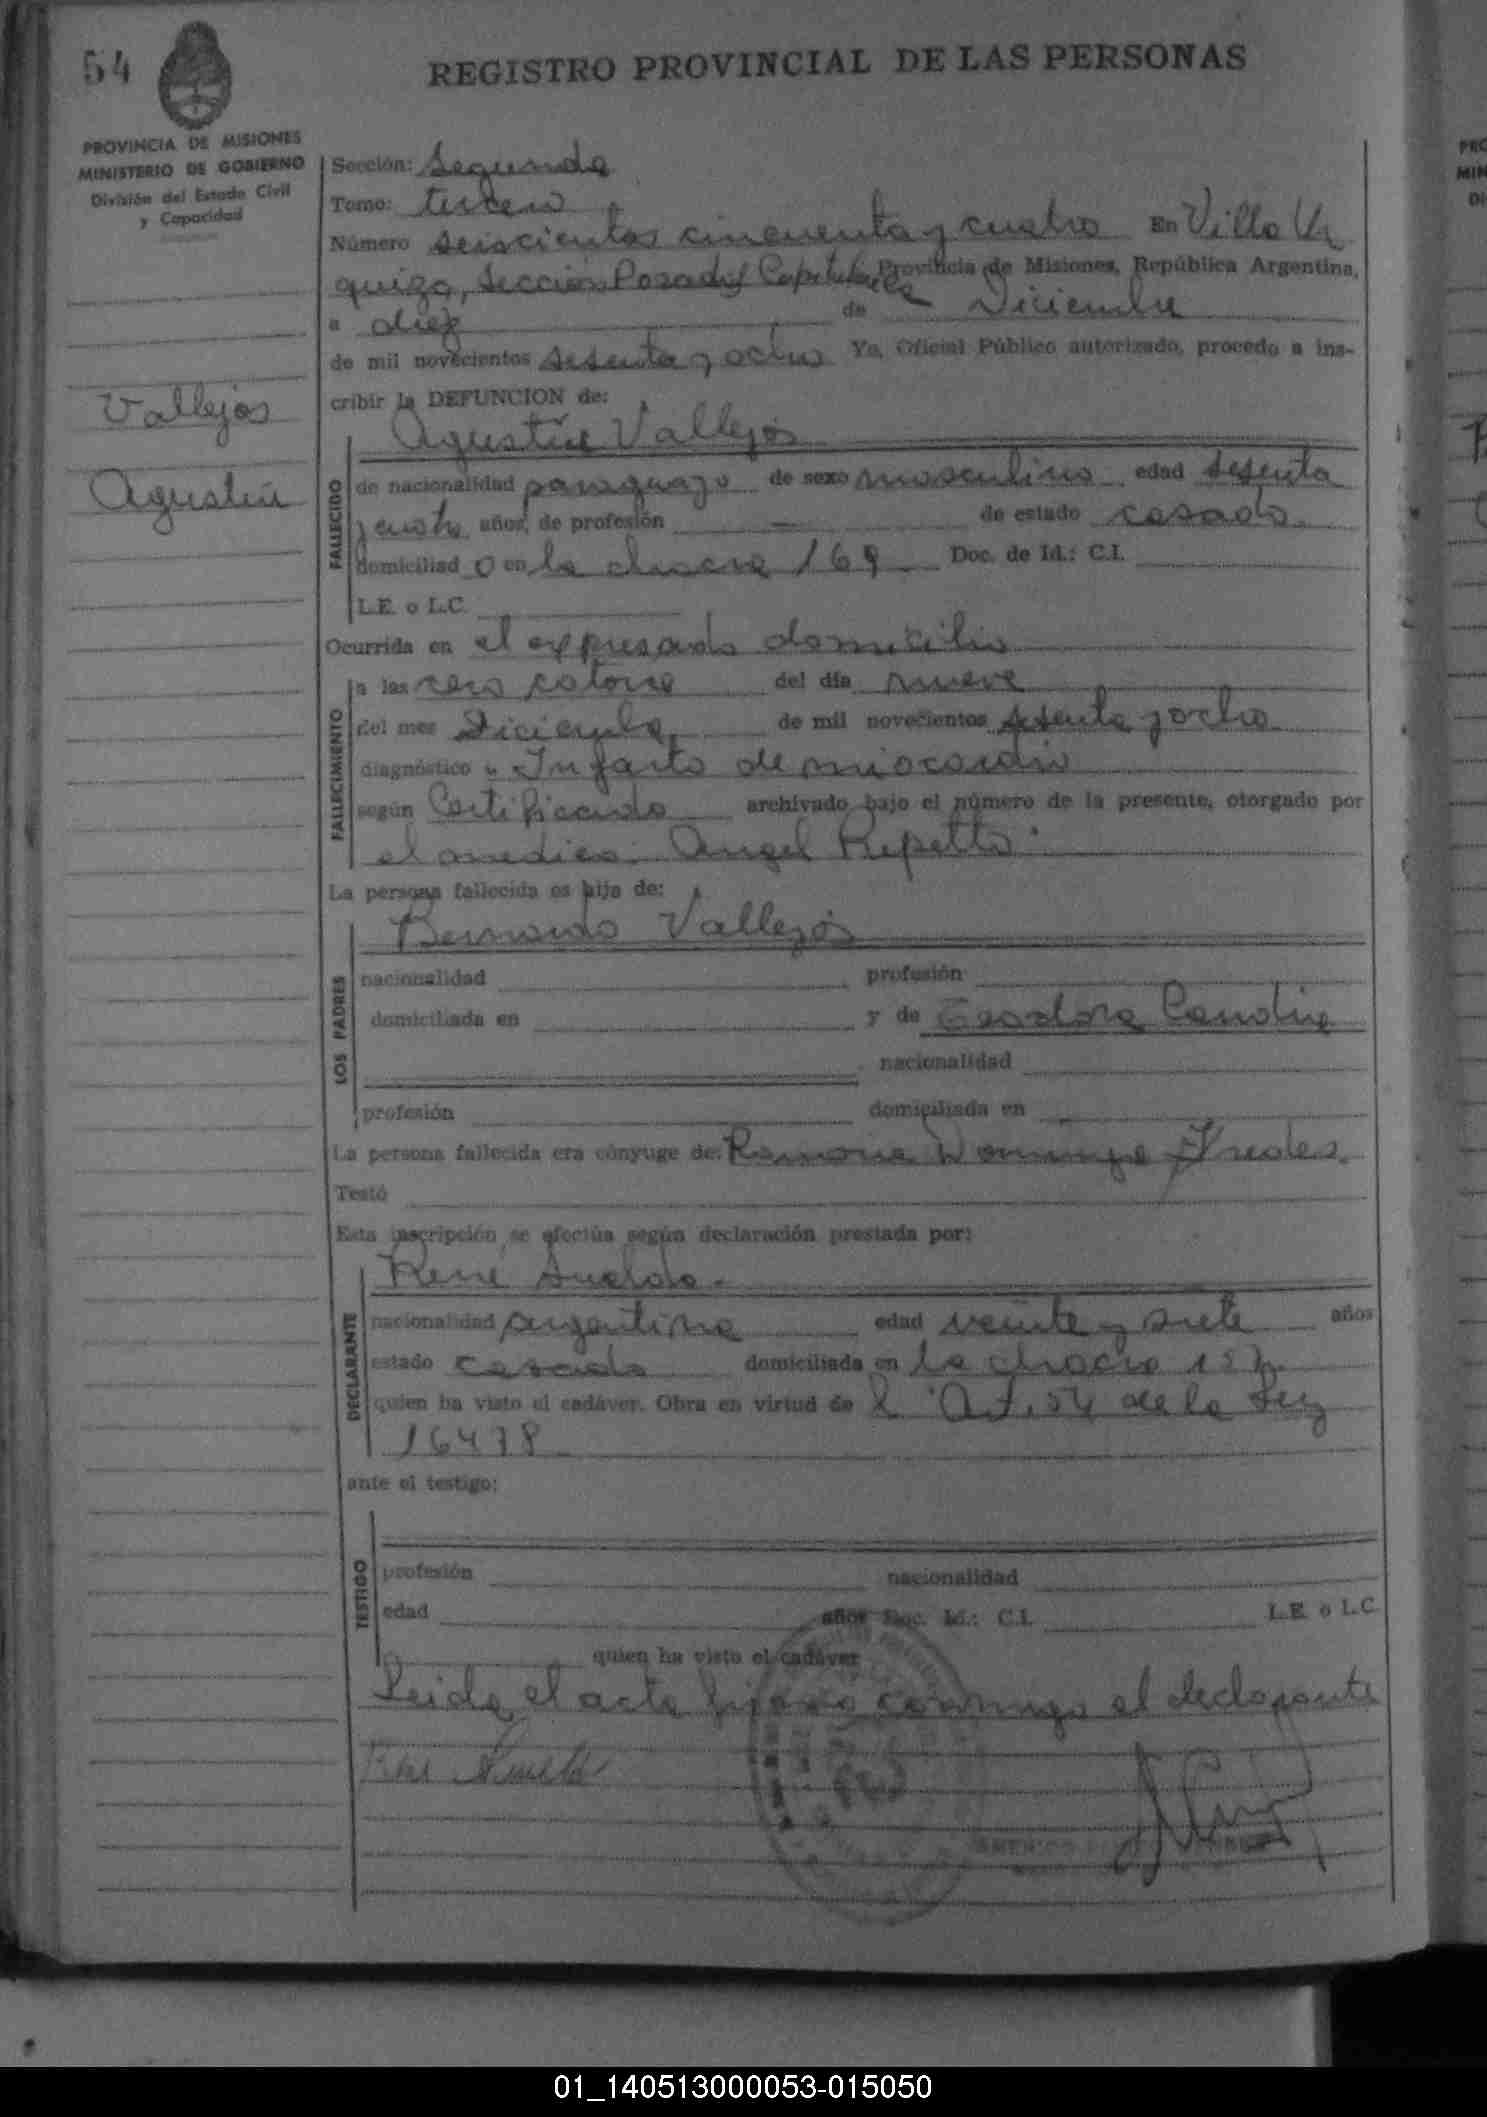 54
REGISTRO PROVINCIAL DE LAS PERSONAS
PROVINCIA DE MISIONES
MINISTERIO DE GOBIERNO
División del Estado Civil
y Capacidad
Vallejos
Agustín
Sección: Segunda
Tomo: tercero
Número seiscientos cincuenta y cuatro En Villa Ur
quiza, Sección Posadas Capital Provincia de Misiones, República Argentina,
a diez de Diciembre
de mil novecientos sesenta y ocho Yo, Oficial Público autorizado, procedo a ins-
cribir la DEFUNCION de:
Agustín Vallejos
FALLECIDO
de nacionalidad paraguayo de sexo masculino edad sesenta
y cuatro años, de profesión — de estado casado
domiciliad o en la chacra 169 Doc. de Id.: C.I.
L.E. o L.C.
Ocurrida en el expresado domicilio
FALLECIMIENTO
a las cero catorce del día nueve
del mes Diciembre de mil novecientos sesenta y ocho
diagnóstico Infarto de miocardio
según Certificado archivado bajo el número de la presente, otorgado por
el medico Angel Repetto
La persona fallecida es hija de:
LOS PADRES
Bernardo Vallejos
nacionalidad profesión
domiciliada en y de Teodora Candia
nacionalidad
profesión domiciliada en
La persona fallecida era cónyuge de: Ramona
Testó
Esta inscripción se efectúa según declaración prestada por:
DECLARANTE
René Sueldo
nacionalidad argentina edad veinte y siete años
estado casado domiciliada en la chacra
quien ha visto el cadáver. Obra en virtud de l Art. 54 de la Ley
16478
ante el testigo:
TESTIGO
profesión nacionalidad
edad años Doc. Id.: C.I. L.E. o L.C.
quien ha visto el cadáver
Leida el acta firma conmigo el declarante
01_140513000053-015050